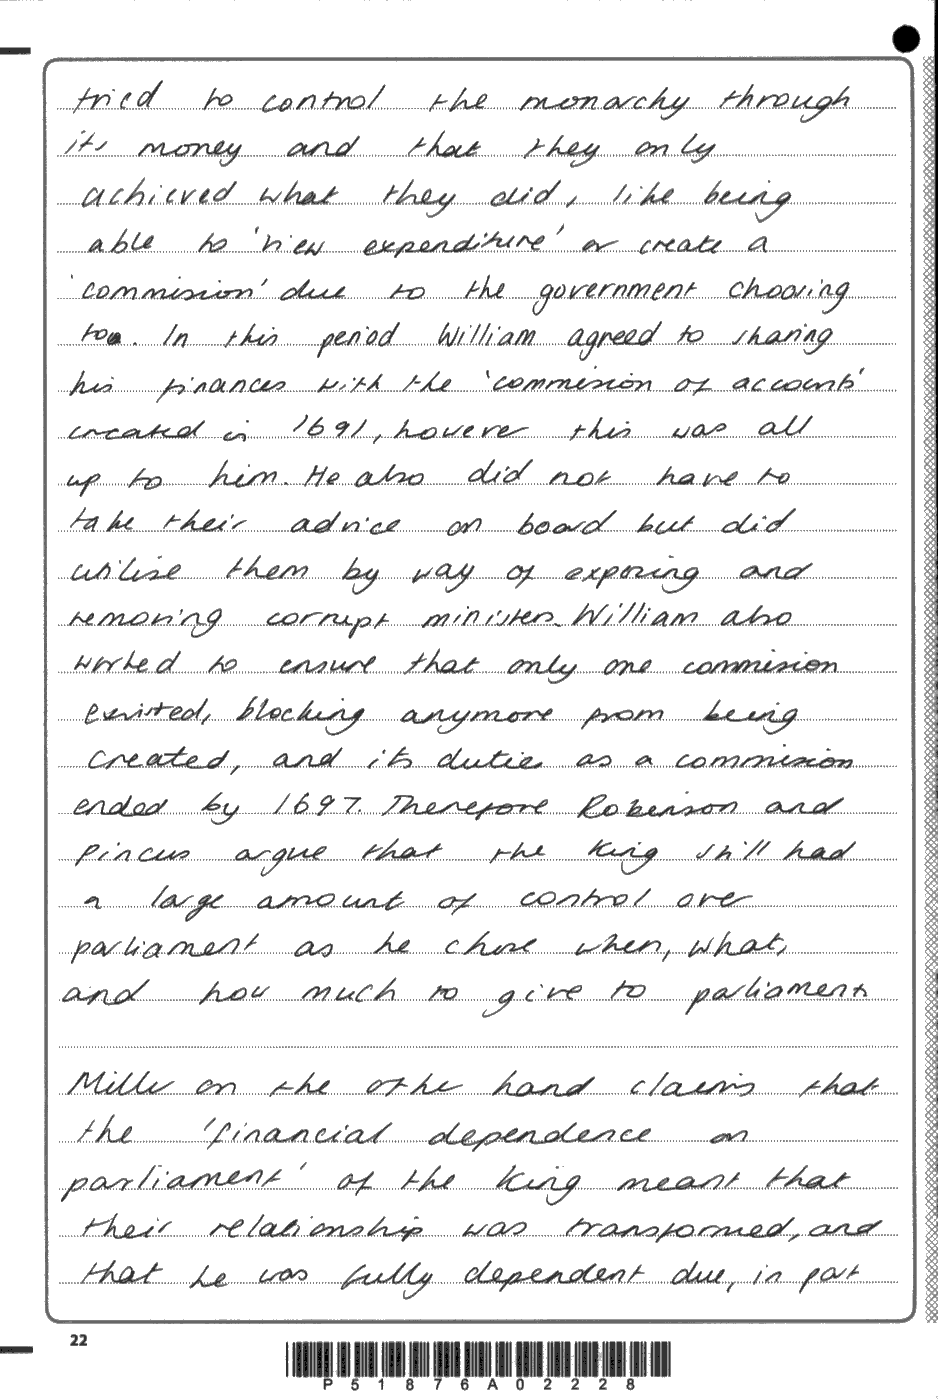 tried to control the monarchy through
its money and that they only
achieved what they did, like being
able to 'view expenditure' or create a
'commision' due to the government choosing
too. In this period William agreed to sharing
his finances with the 'commision of accounts'
created in 1691, however this was all
up to him. He also did not have to
take their advice on board but did
utilise them by way of exposing and
removing corrupt ministers. William also
worked to ensure that only one commision
existed, blocking anymore from being
created, and its duties as a commision
ended by 1697. Therefore Robinson and
Pincus argue that the King still had
a large amount of control over
parliament as he chose when, what,
and how much to give to parliament.
Miller on the other hand claims that
the 'financial dependence on
parliament' of the King meant that
their relationship was transformed, and
that he was fully dependent due, in part
22
P51876A02228